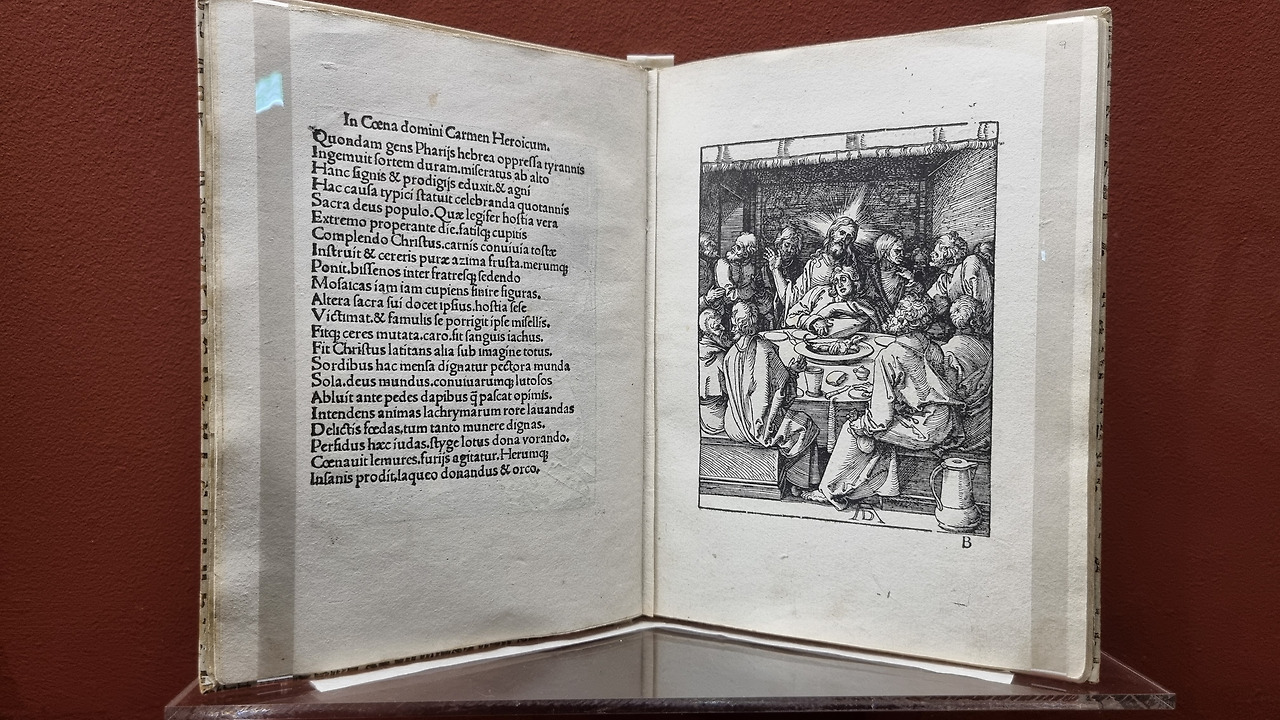 In Cœna domini Carmen Heroicum.
Quondam gens Pharijs hebrea oppreſſa tyrannis
Ingemuit ſortem duram.miſeratus ab alto
Hanc ſignis & prodigijs eduxit.& agni
Hac cauſa typici ſtatuit celebranda quotannis
Sacra deus populo.Quæ legifer hoſtia vera
Extremo properante die.fatiſqȝ cupitis
Complendo Chriſtus.carnis conuiuia toſtæ
Inſtruit & cereris puræ azima fruſta.merumqȝ
Ponit.biſſenos inter fratreſqȝ ſedendo
Moſaicas iam iam cupiens finire figuras.
Altera ſacra ſui docet ipſius.hoſtia ſeſe
Victimat.& famulis ſe porrigit ipſe miſellis.
Fitqȝ ceres mutata.caro.fit ſanguis iachus.
Fit Chriſtus latitans alia ſub imagine totus.
Sordibus hac menſa dignatur pectora munda
Sola.deus mundus.conuiuarumqȝ lutoſos
Abluit ante pedes dapibus q̃ paſcat opimis.
Intendens animas lachrymarum rore lauandas
Delictis fœdas.tum tanto munere dignas.
Perfidus hæc iudas.ſtyge lotus dona vorando.
Cœnauit lemures.furijs agitatur.Herumqȝ
Inſanis prodit.laqueo donandus & orco.
AD
B